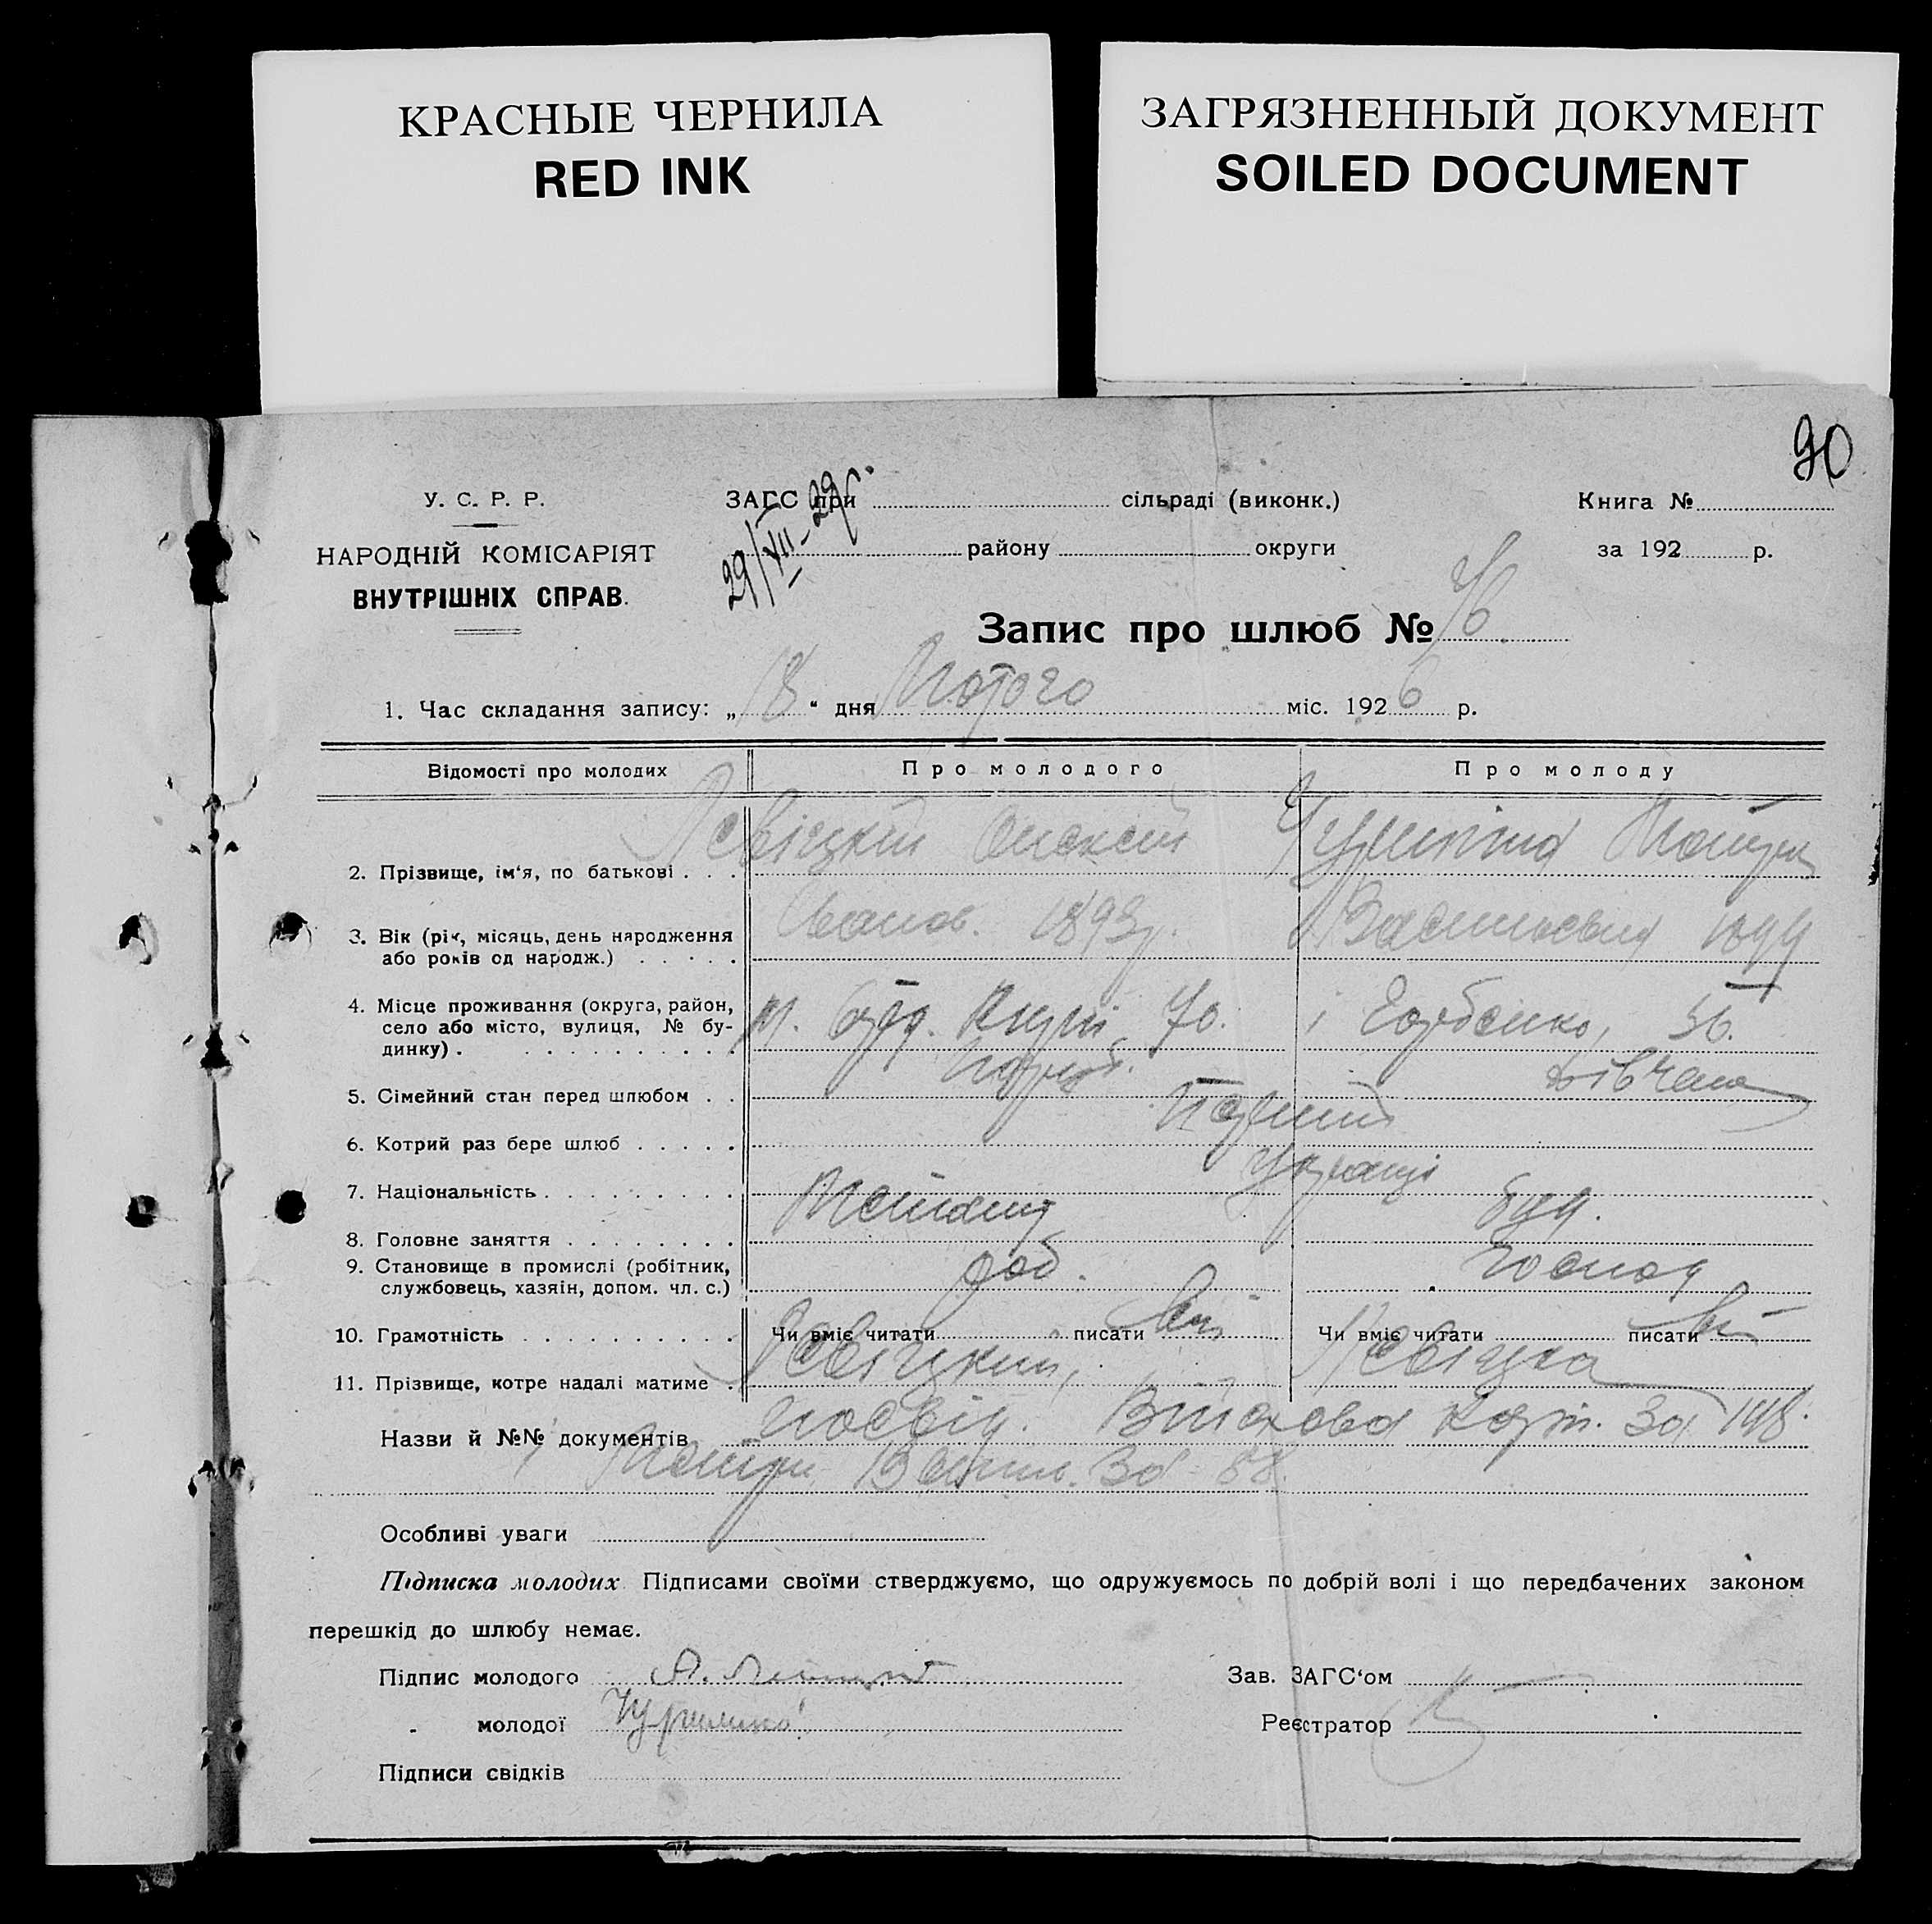 КРАСНЫЕ ЧЕРНИЛА
RED INK
ЗАГРЯЗНЕННЫЙ ДОКУМЕНТ
SOILED DOCUMENT
90
У. С. Р. Р.
НАРОДНІЙ КОМІСАРІЯТ
ВНУТРІШНІХ СПРАВ.
ЗАГС при сільраді (виконк.)
району округи
29/VII-29р.
Книга №
за 192 р.
Запис про шлюб № 76
1. Час складання запису: „18" дня Лютого міс. 1926 р.
Відомості про молодих Про молодого Про молоду
2. Прізвище, ім'я, по батькові . . . Левіцкий Олексій
3. Вік (рік, місяць, день народження
або років од народж.) . . . . . Іванов. 1893р. Васильевна 1899
4. Місце проживання (округа, район,
село або місто, вулиця, № будинку) . . . . . . . . . . 70. 56.
5. Сімейний стан перед шлюбом . . Парубок. дівчина
6. Котрий раз бере шлюб . . . . . Перший
7. Національність . . . . . . . . . Українці
8. Головне заняття . . . . . . . .
9. Становище в промислі (робітник,
службовець, хазяїн, допом. чл. с.) роб. господ
10. Грамотність . . . . . . . . . . Чи вміє читати писати Вміє Чи вміє читати писати Вміє
11. Прізвище, котре надалі матиме . Левіцкий, Левіцка
Назви й №№ документів посвід. Військова карт. за 148.
за 88.
Особливі уваги
Підписка молодих Підписами своїми стверджуємо, що одружуємось по добрій волі і що передбачених законом
перешкід до шлюбу немає.
Підпис молодого Зав. ЗАГС'ом
„ молодої Реєстратор
Підписи свідків